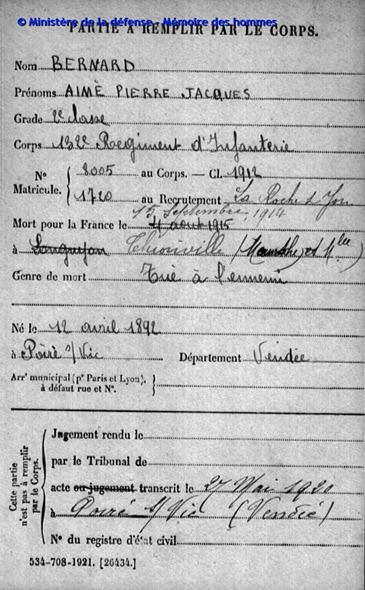 © Ministère de la défense - Mémoire des hommes
PARTIE À REMPLIR PAR LE CORPS.
Nom BERNARD
Prénoms AIMÉ PIERRE JACQUES
Grade 2e classe
Corps 132e Régiment d'Infanterie
N° 8005 au Corps. — Cl. 1912
Matricule. 1720 au Recrutement La Roche s/ Yon
13 Septembre 1914
Mort pour la France le 4 août 1915
à Longuyon Thionville (Meurthe et Mlle)
Genre de mort Tué à l'ennemi
Né le 12 avril 1892
à Poiré s/Vic Département Vendée
Arrt municipal (pr Paris et Lyon),
à défaut rue et N°.
Cette partie
n'est pas à remplir
par le Corps.
Jugement rendu le
par le Tribunal de
acte ou jugement transcrit le 27 Mai 1920
à Poiré s/ Vic (Vendée)
N° du registre d'état civil
534-708-1921. [26434.]